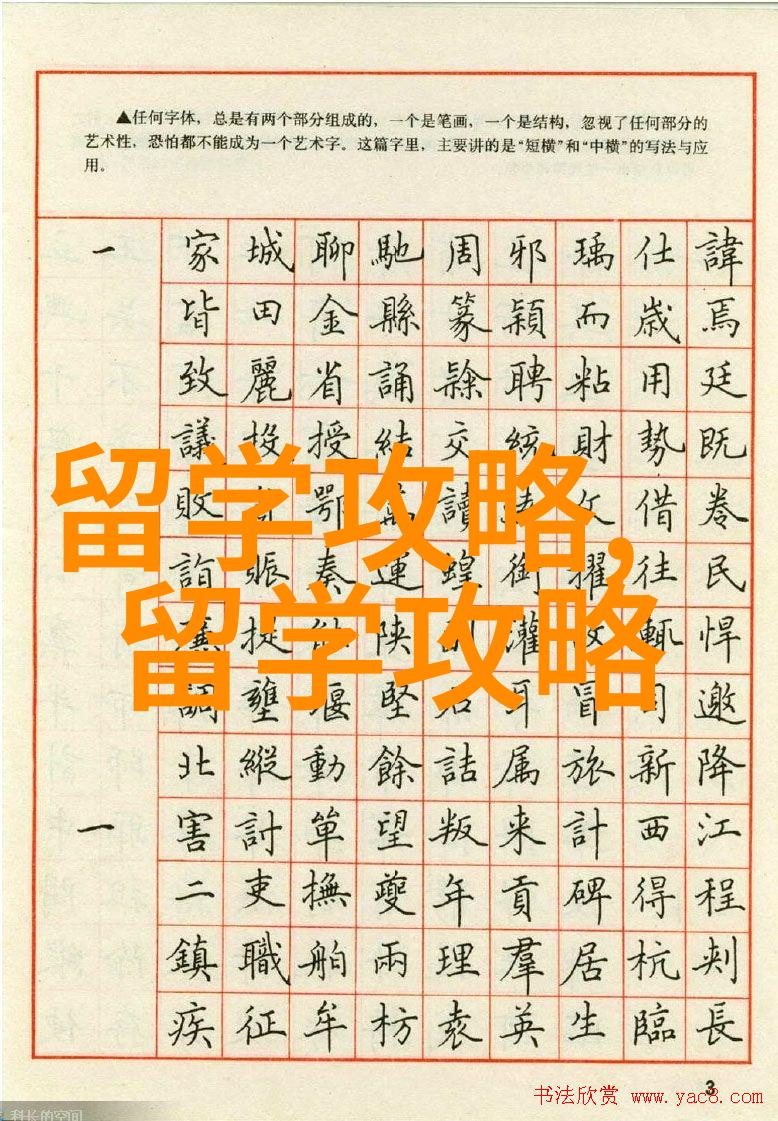 ▲任何字体，总是有两个部分组成的，一个是笔画，一个是结构，忽视了任何部分的
艺术性，恐怕都不能成为一个艺术字。这篇字里，主要讲的是“短横”和“中横”的写法与应
用。
一 家城聊馳周邪瑀仕諱
皆田金縣篆穎而歲焉
致麗省誦隸聘粘用廷
議投授結交統財勢既
敗鄂萬讀文借卷
詣賑奏連蝗銜擢往民
提陝灌輒悍
調壅堰堅石耳冒司邀
北縱動餘詰属旅新降
一 害討單望叛来計西江
二吏撫夔年貢碑得程
鎮職舶兩理羣居杭刺
疾征牟枋袁英生臨長
留学攻略,
留学攻略
3
书法欣赏 www.yac8.com
科长的空间